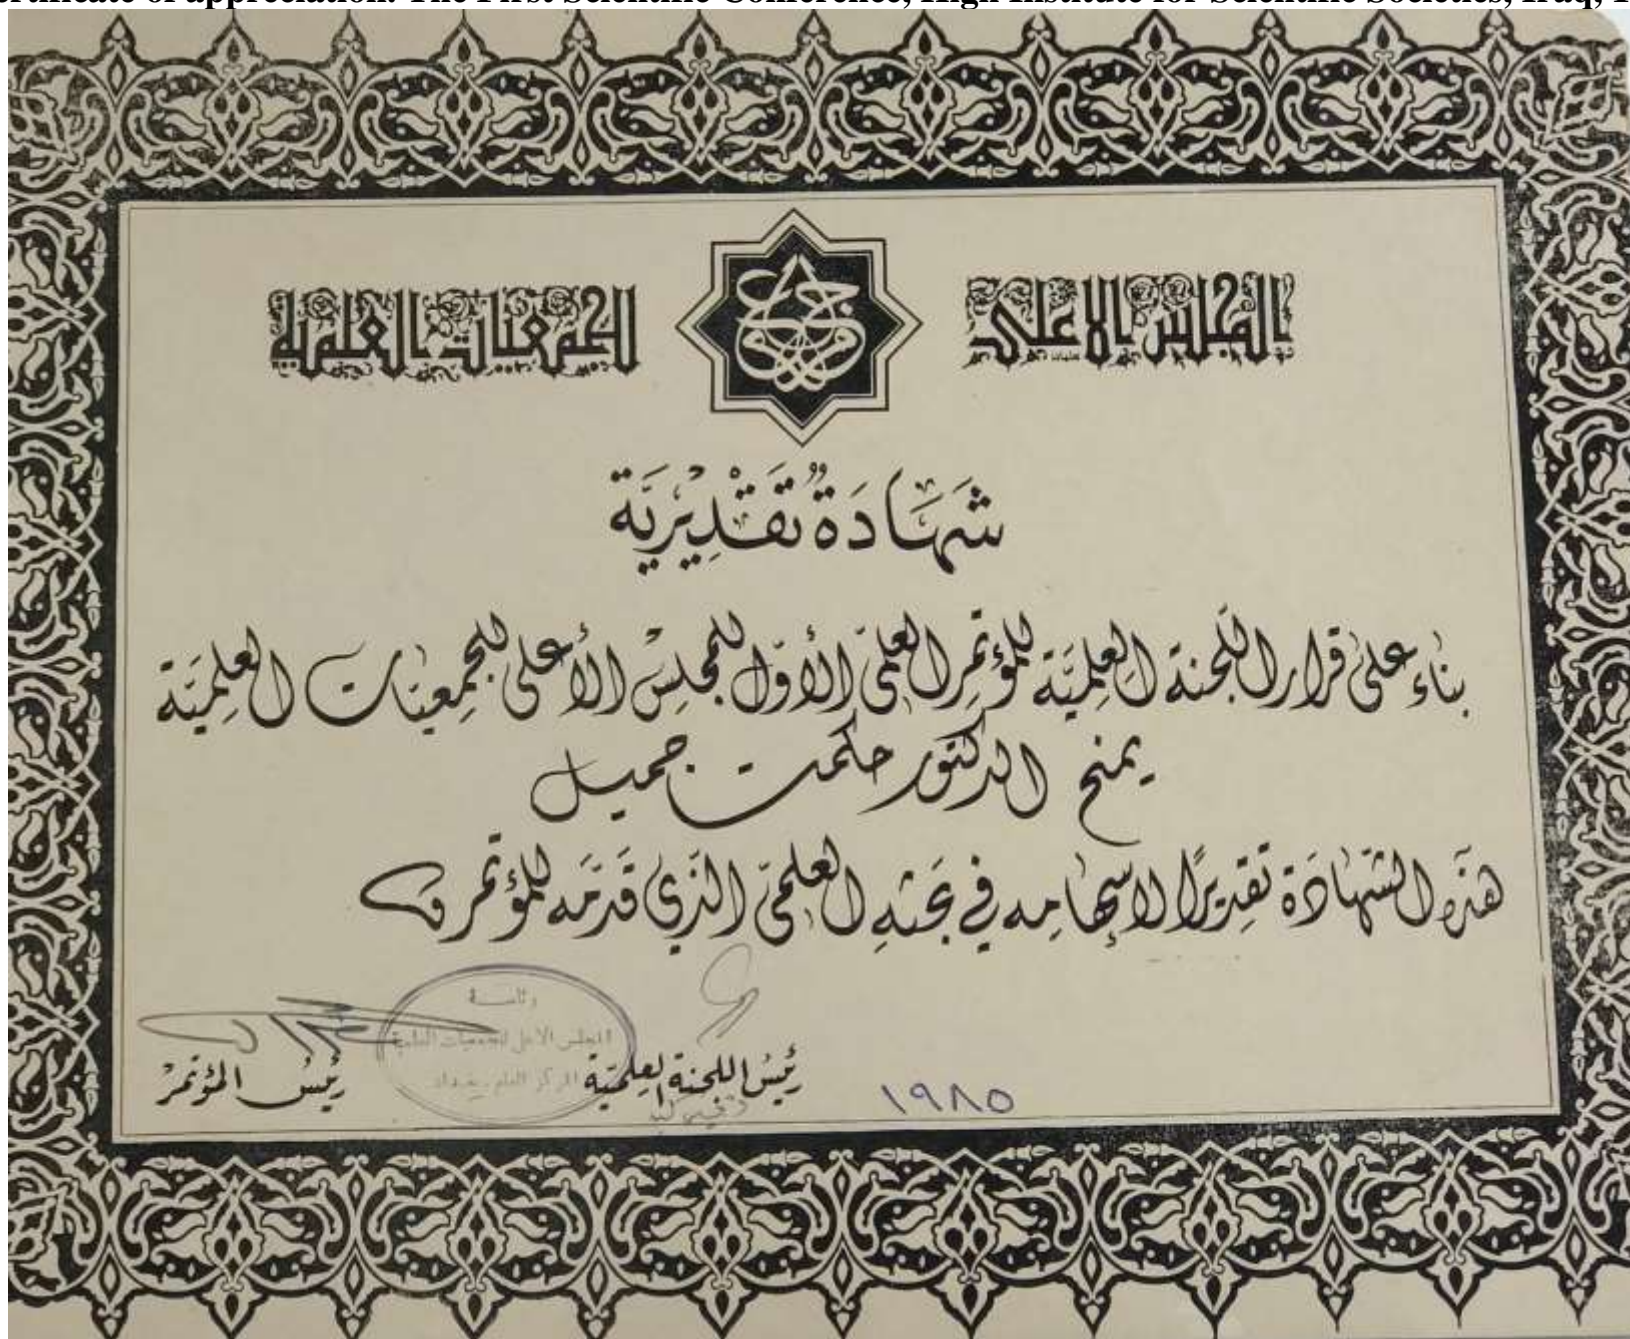 ertificate of appreciation. The First Scientific Conference, High Institute for Scientific Societies, Iraq, 1
المجلس الاعلى
للجمعيات العلمية
شَهَادَةٌ تَقْدِيْرِيَّة
بناء على قرار اللّجنة العِلميَّة للمؤتمر العلميّ الأوّل للمجلس الأعلى للجمعيّات العِلميَّة
يمنح الدكتور حكمت جميل
هذه الشّهادَة تقديرًا لإسهامه في بحثهِ العلميّ الّذي قَدّمَه للمؤتمر
رئاسة
المجلس الاعلى للجمعيات العلمية
المركز العام - بغداد
رئيسُ اللجنة العِلميّة
رئيسُ المؤتمرْ
١٩٨٥